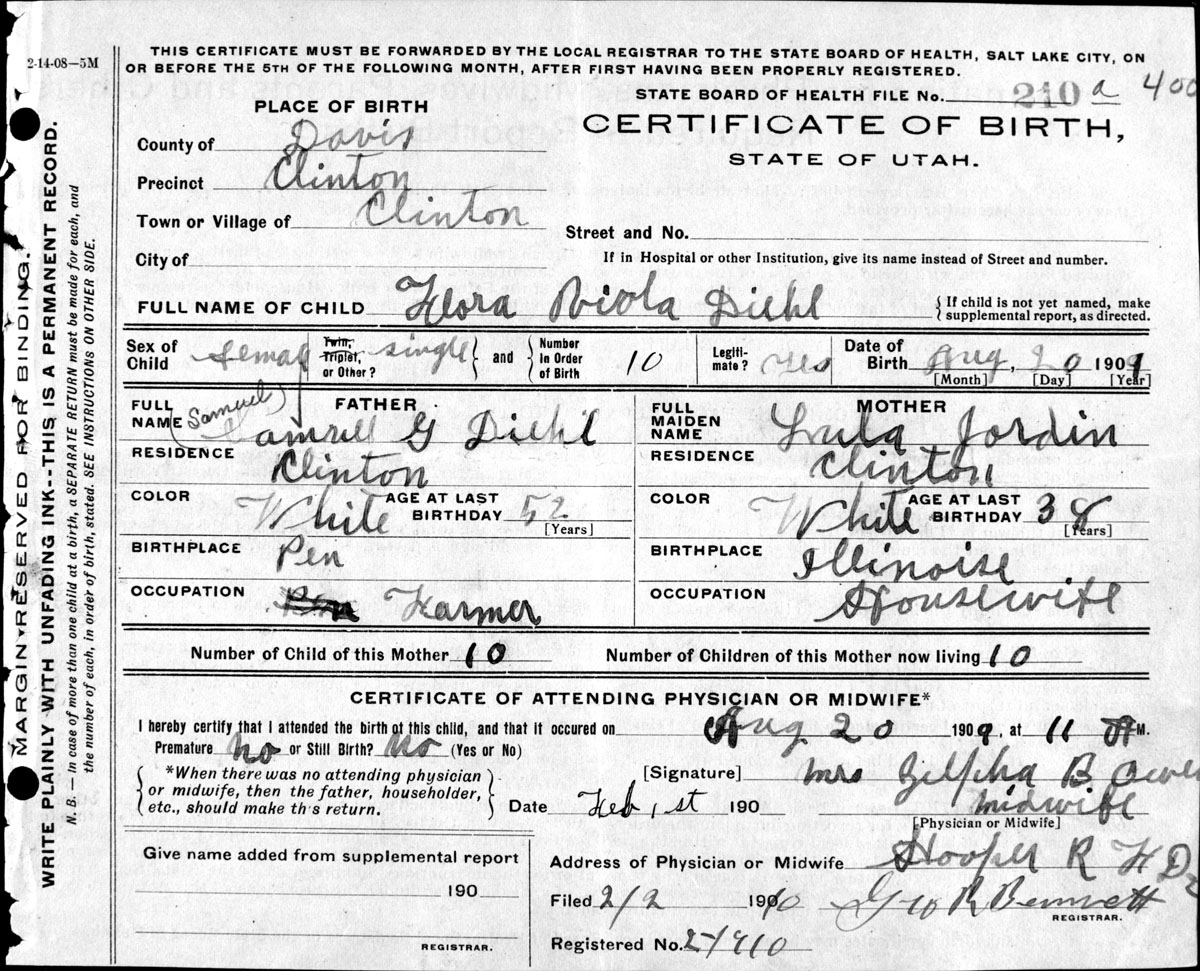 2-14-08—5M
THIS CERTIFICATE MUST BE FORWARDED BY THE LOCAL REGISTRAR TO THE STATE BOARD OF HEALTH, SALT LAKE CITY, ON
OR BEFORE THE 5TH OF THE FOLLOWING MONTH, AFTER FIRST HAVING BEEN PROPERLY REGISTERED.
STATE BOARD OF HEALTH FILE No. 210 a 400
PLACE OF BIRTH
CERTIFICATE OF BIRTH,
STATE OF UTAH.
County of Davis
Precinct Clinton
Town or Village of Clinton
Street and No.
City of
If in Hospital or other Institution, give its name instead of Street and number.
FULL NAME OF CHILD Flora Viola Diehl
{If child is not yet named, make
supplemental report, as directed.
Sex of Child Female
Twin, Triplet, or Other? single } and { Number in Order of Birth 10
Legitimate? Yes
Date of Birth Aug, 20 1909
[Month] [Day] [Year]
FATHER
FULL NAME (Samuel) Samuell G Diehl
RESIDENCE Clinton
COLOR White AGE AT LAST BIRTHDAY 52 [Years]
BIRTHPLACE Pen
OCCUPATION Farmer
MOTHER
FULL MAIDEN NAME Lula Jordin
RESIDENCE Clinton
COLOR White AGE AT LAST BIRTHDAY 38 [Years]
BIRTHPLACE Illinoise
OCCUPATION Housewife
Number of Child of this Mother 10
Number of Children of this Mother now living 10
CERTIFICATE OF ATTENDING PHYSICIAN OR MIDWIFE*
I hereby certify that I attended the birth of this child, and that it occured on Aug 20 1909, at 11 A M.
Premature no or Still Birth? no (Yes or No)
{*When there was no attending physician
or midwife, then the father, householder,
etc., should make this return.}
[Signature] Mrs Zelpha B
midwife
[Physician or Midwife]
Date Feb, 1st 190
Give name added from supplemental report
190
REGISTRAR.
Address of Physician or Midwife Hooper R F D
Filed 2/2 1910 Geo R Bennett
REGISTRAR.
Registered No.
MARGIN RESERVED FOR BINDING.
WRITE PLAINLY WITH UNFADING INK--THIS IS A PERMANENT RECORD.
N. B. — In case of more than one child at a birth, a SEPARATE RETURN must be made for each, and
the number of each, in order of birth, stated. SEE INSTRUCTIONS ON OTHER SIDE.